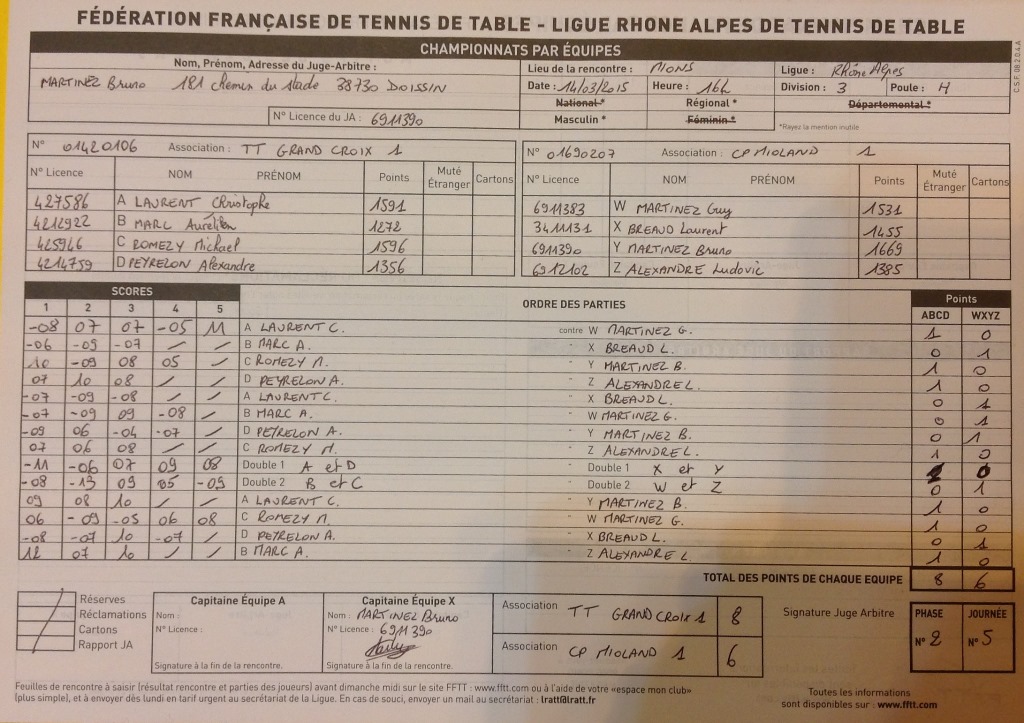 FÉDÉRATION FRANÇAISE DE TENNIS DE TABLE - LIGUE RHONE ALPES DE TENNIS DE TABLE
CHAMPIONNATS PAR ÉQUIPES
C.S.F. 08.2.0.4.A
Nom, Prénom, Adresse du Juge-Arbitre :
MARTINEZ Bruno 181 chemin du stade 38730 DOISSIN
N° Licence du JA : 6911390
Lieu de la rencontre : MIONS
Date : 14/03/2015 Heure : 16h
National * Régional *
Masculin * Féminin *
Ligue : Rhône Alpes
Division : 3 Poule : H
Départemental *
*Rayez la mention inutile
N° 01420106 Association : TT GRAND CROIX 1
N° Licence NOM PRÉNOM Points Muté Étranger Cartons
427586 A LAURENT Christophe 1591
4212922 B MARC Aurélien 1272
425946 C ROMEZY Michael 1596
4214759 D PEYRELON Alexandre 1356
N° 01690207 Association : CP MIOLAND 1
N° Licence NOM PRÉNOM Points Muté Étranger Cartons
6911383 W MARTINEZ Guy 1531
3411131 X BREAUD Laurent 1455
6911390 Y MARTINEZ Bruno 1669
6912102 Z ALEXANDRE Ludovic 1385
SCORES ORDRE DES PARTIES Points
1 2 3 4 5 ABCD WXYZ
-08 07 07 -05 11 A LAURENT C. contre W MARTINEZ G. 1 0
-06 -09 -07 / / B MARC A. " X BREAUD L. 0 1
10 -09 08 05 / C ROMEZY M. " Y MARTINEZ B. 1 0
07 10 08 / / D PEYRELON A. " Z ALEXANDRE L. 1 0
-07 -09 -08 / / A LAURENT C. " X BREAUD L. 0 1
-07 -09 09 -08 / B MARC A. " W MARTINEZ G. 0 1
-09 06 -04 -07 / D PEYRELON A. " Y MARTINEZ B. 0 1
07 06 08 / / C ROMEZY M. " Z ALEXANDRE L. 1 0
-11 -06 07 09 08 Double 1 A et D " Double 1 X et Y 1 0
-08 -13 09 05 -09 Double 2 B et C " Double 2 W et Z 0 1
09 08 10 / / A LAURENT C. " Y MARTINEZ B. 1 0
06 -09 -05 06 08 C ROMEZY M. " W MARTINEZ G. 1 0
-08 -07 10 -07 / D PEYRELON A. " X BREAUD L. 0 1
12 07 10 / / B MARC A. " Z ALEXANDRE L. 1 0
TOTAL DES POINTS DE CHAQUE EQUIPE 8 6
Réserves
Réclamations
Cartons
Rapport JA
Capitaine Équipe A
Nom :
N° Licence :
Signature à la fin de la rencontre.
Capitaine Équipe X
Nom : MARTINEZ Bruno
N° Licence : 6911390
Signature à la fin de la rencontre.
Association TT GRAND CROIX 1 8
Association CP MIOLAND 1 6
Signature Juge Arbitre
PHASE JOURNÉE
N° 2 N° 5
Feuilles de rencontre à saisir (résultat rencontre et parties des joueurs) avant dimanche midi sur le site FFTT : www.fftt.com ou à l'aide de votre «espace mon club»
(plus simple), et à envoyer dès lundi en tarif urgent au secrétariat de la Ligue. En cas de souci, envoyer un mail au secrétariat : lratt@lratt.fr
Toutes les informations
sont disponibles sur : www.fftt.com